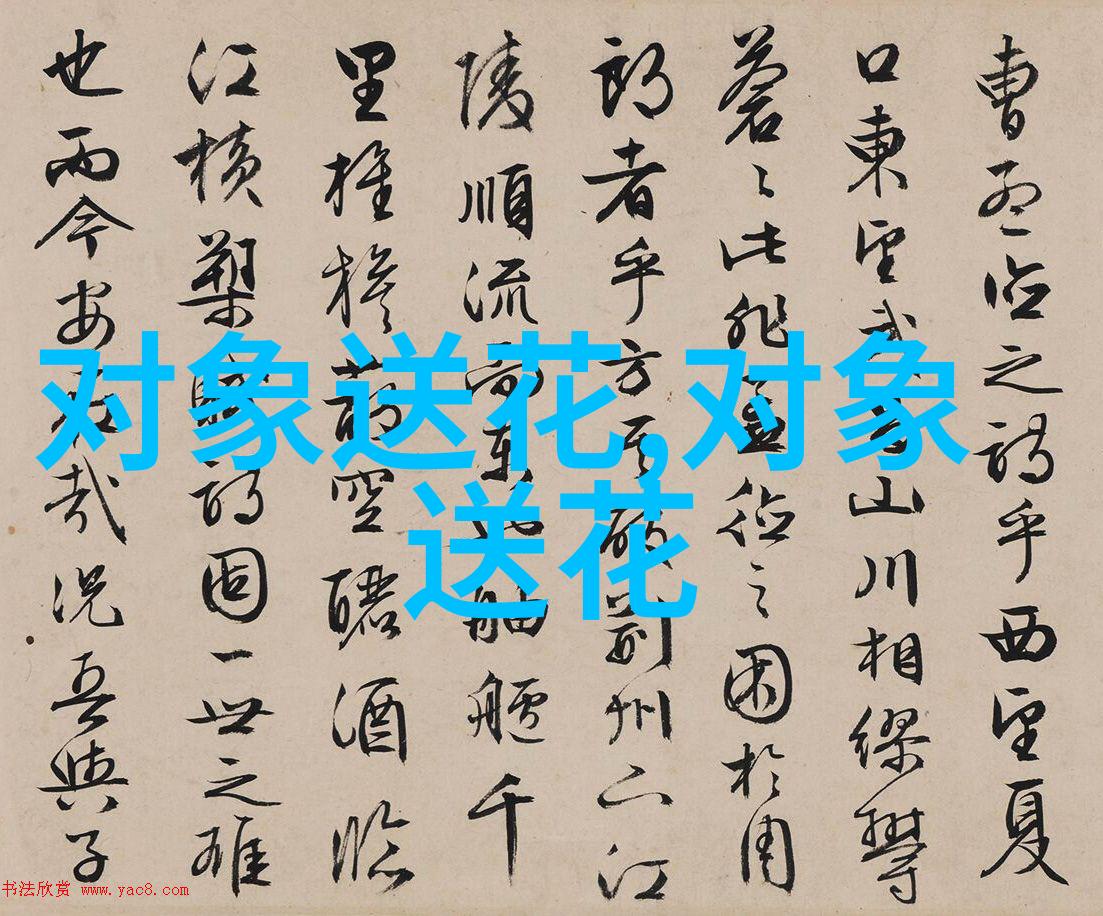 曹孟德之詩乎西望夏
口東望武昌山川相繆鬱
蒼〻此非孟德之困於周
郎者乎方其破荊州下江
陵順流而東也舳艫千
里旌旗蔽空釃酒臨
江橫槊賦詩固一世之雄
也而今安在哉況吾與子
对象送花,对象
送花
书法欣赏 www.yac8.com